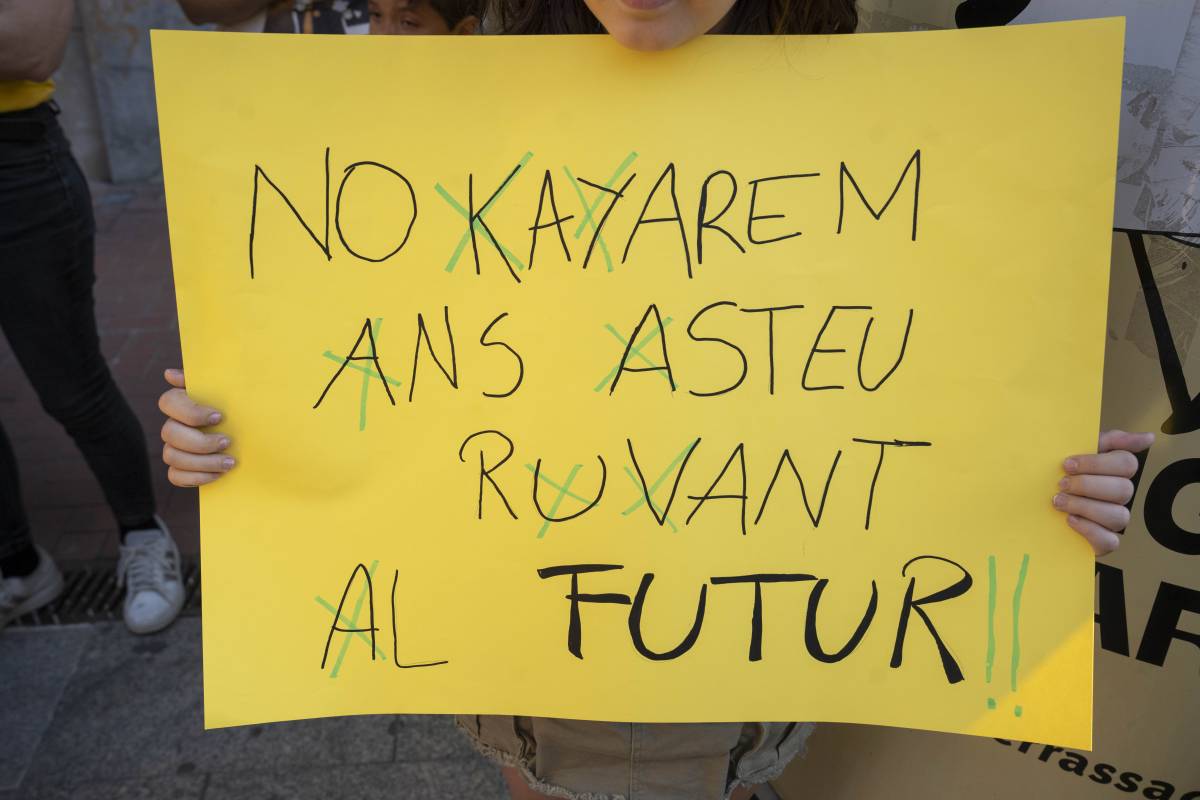 NO KAYAREM
ANS ASTEU
RUVANT
AL FUTUR!!
AR
rrassa